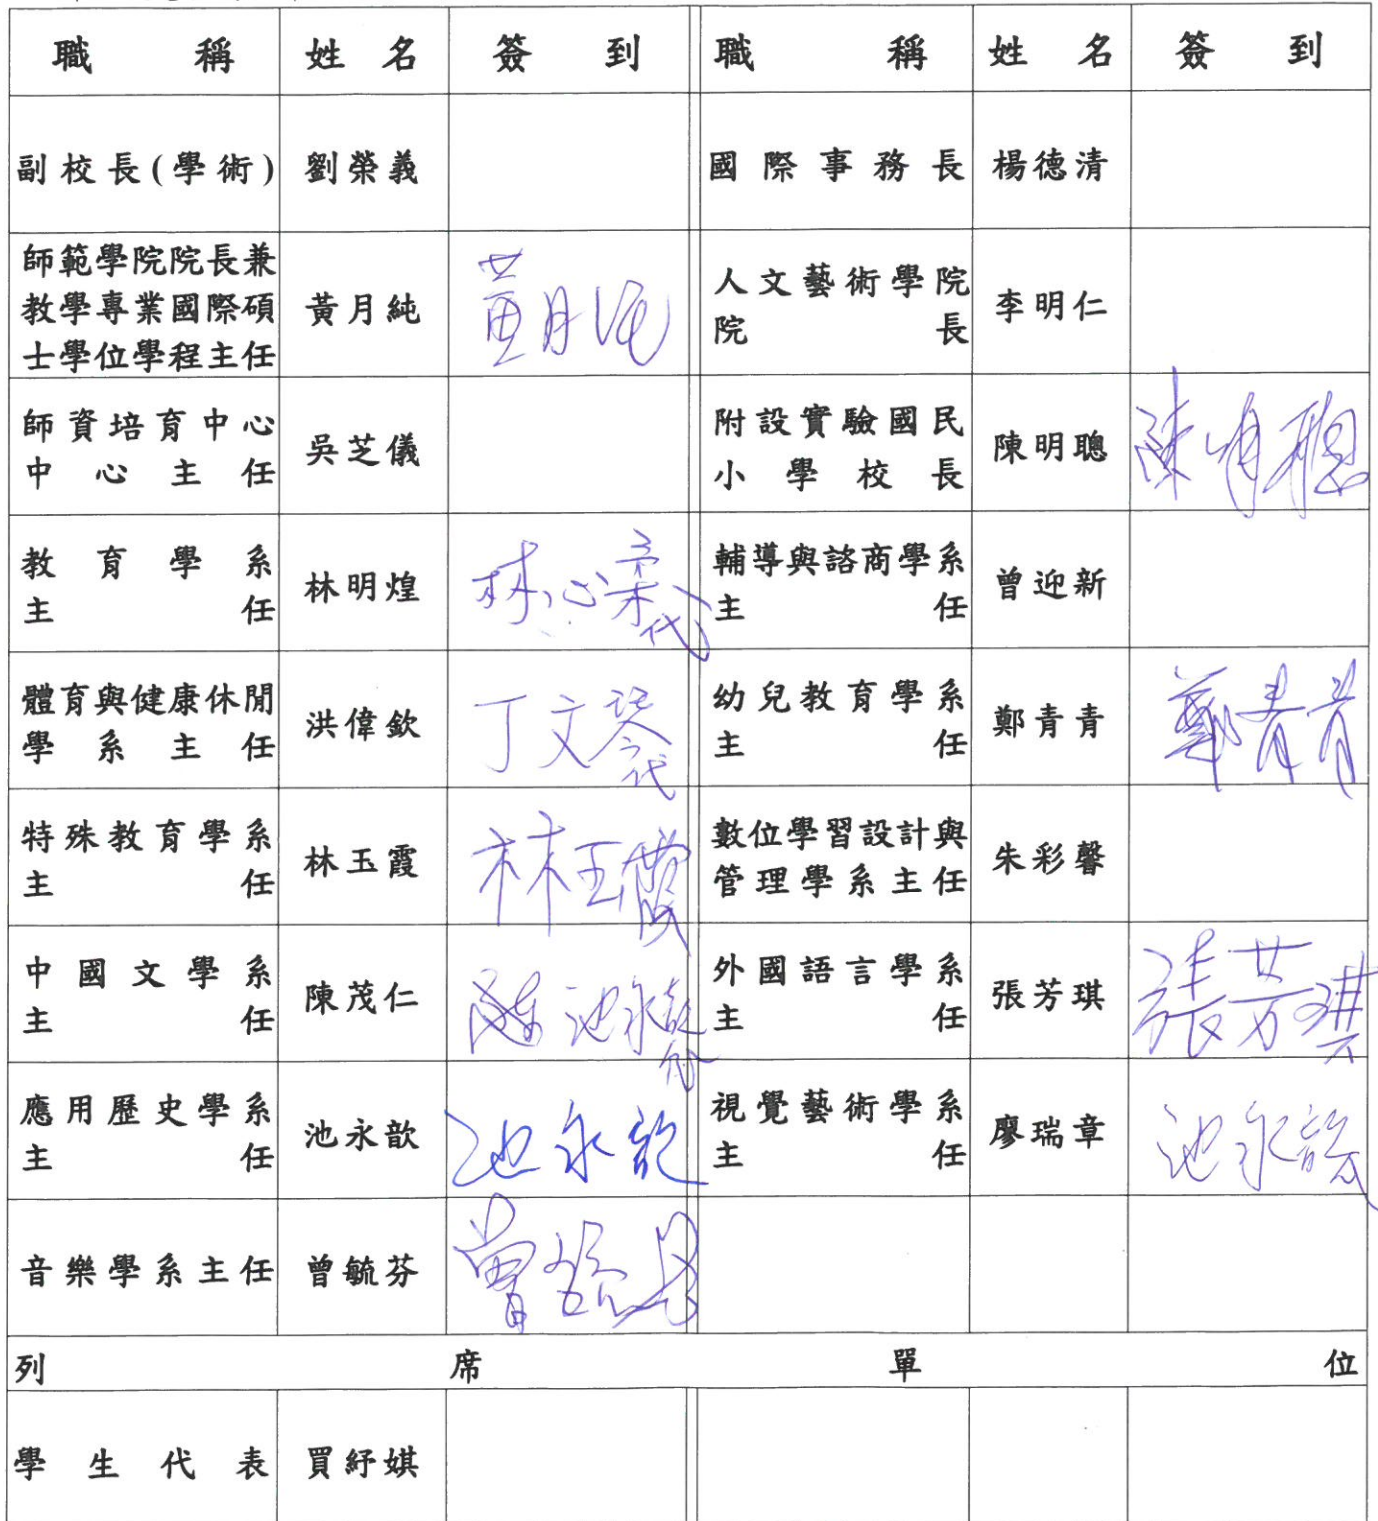 職稱 姓名 簽到 職稱 姓名 簽到
副校長(學術) 劉榮義 國際事務長 楊德清
師範學院院長兼
教學專業國際碩
士學位學程主任
黃月純 黃月純
人文藝術學院
院長
李明仁
師資培育中心
中心主任
吳芝儀
附設實驗國民
小學校長
陳明聰 陳明聰
教育學系
主任
林明煌 林心柔代
輔導與諮商學系
主任
曾迎新
體育與健康休閒
學系主任
洪偉欽 丁文琴代
幼兒教育學系
主任
鄭青青 鄭青青
特殊教育學系
主任
林玉霞 林玉霞
數位學習設計與
管理學系主任
朱彩馨
中國文學系
主任
陳茂仁 池永歆代
外國語言學系
主任
張芳琪 張芳琪
應用歷史學系
主任
池永歆 池永歆
視覺藝術學系
主任
廖瑞章 池永歆代
音樂學系主任 曾毓芬 曾毓芬
列席單位
學生代表 買紓娸